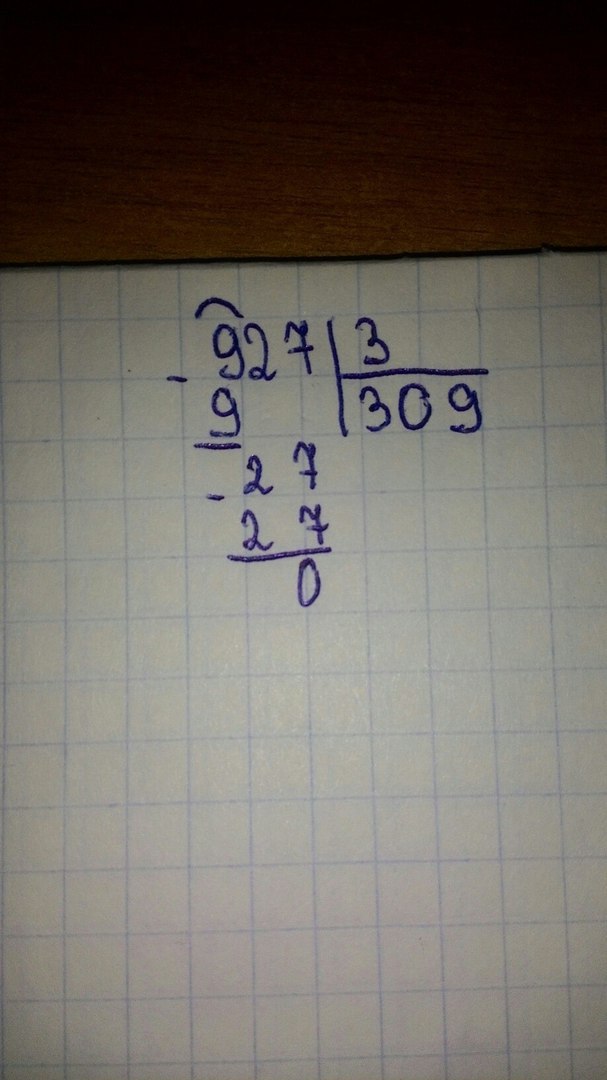 927 3
- 9 309
- 27
27
0